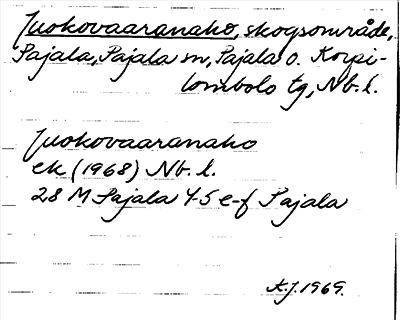 Juokovaaranaho, skogsområde,
Pajala, Pajala sn, Pajala o. Korpi-
lombolo tg, Nb. l.
Juokovaaranaho
ek (1968) Nb. l.
28 M Pajala 4-5 e-f Pajala
A.J. 1969.